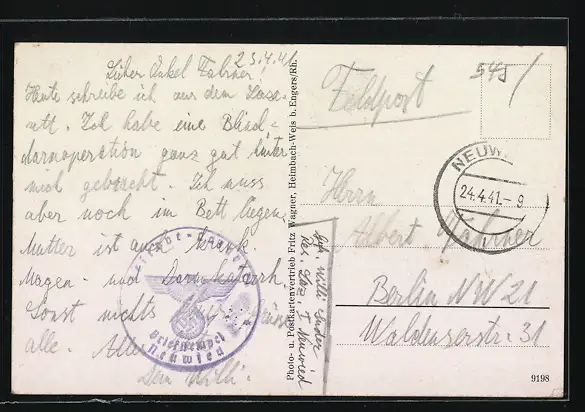 23.4.41
Lieber Onkel Fahrner!
Heute schreibe ich aus dem Laza-
rett. Ich habe eine Blind-
darmoperation ganz gut hinter
mich gebracht. Ich muss
aber noch im Bett liegen.
Mutter ist auch krank.
Magen- und Darmkatarrh.
Sonst nichts
alle.
Dein Willi.
Briefstempel
Neuwied
Photo- u. Postkartenvertrieb Fritz Wagner, Heimbach-Weis b. Engers/Rh.
Willi
Res. Laz. I Neuwied
Feldpost
545
NEUW
24.4.41.-9
Herrn
Albert Fahrner
Berlin NW 21
Waldenserstr. 31
9198